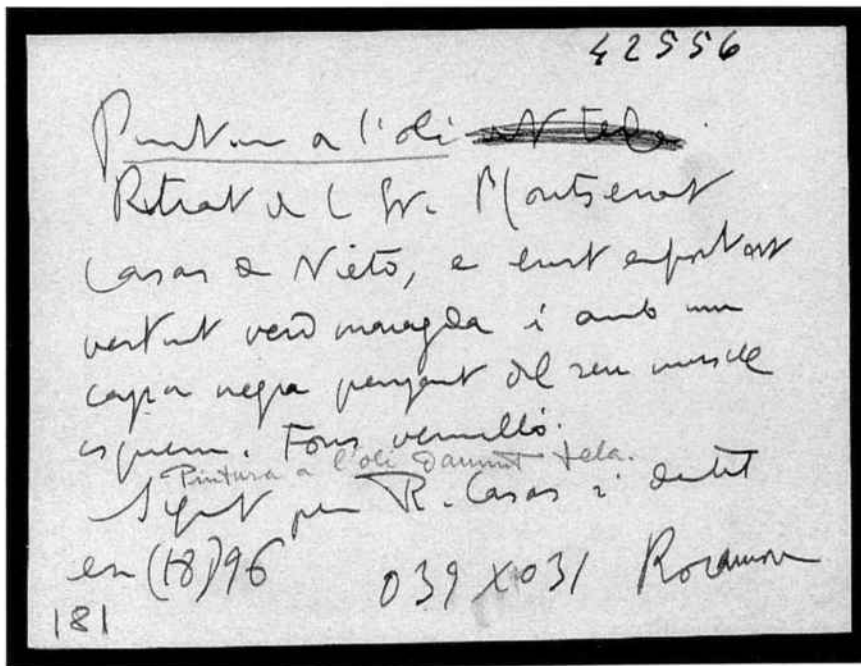 42556
Pintura a l'oli
Retrat de la Sra. Montserrat
Casas de Nieto,
vestit verd maragda i amb una
capa negra penjant del seu muscle
esquerre. Fons vermelló.
Pintura a l'oli damunt tela.
Signat per R. Casas i datat
en (18)96 039 X 031 Rocamora
181